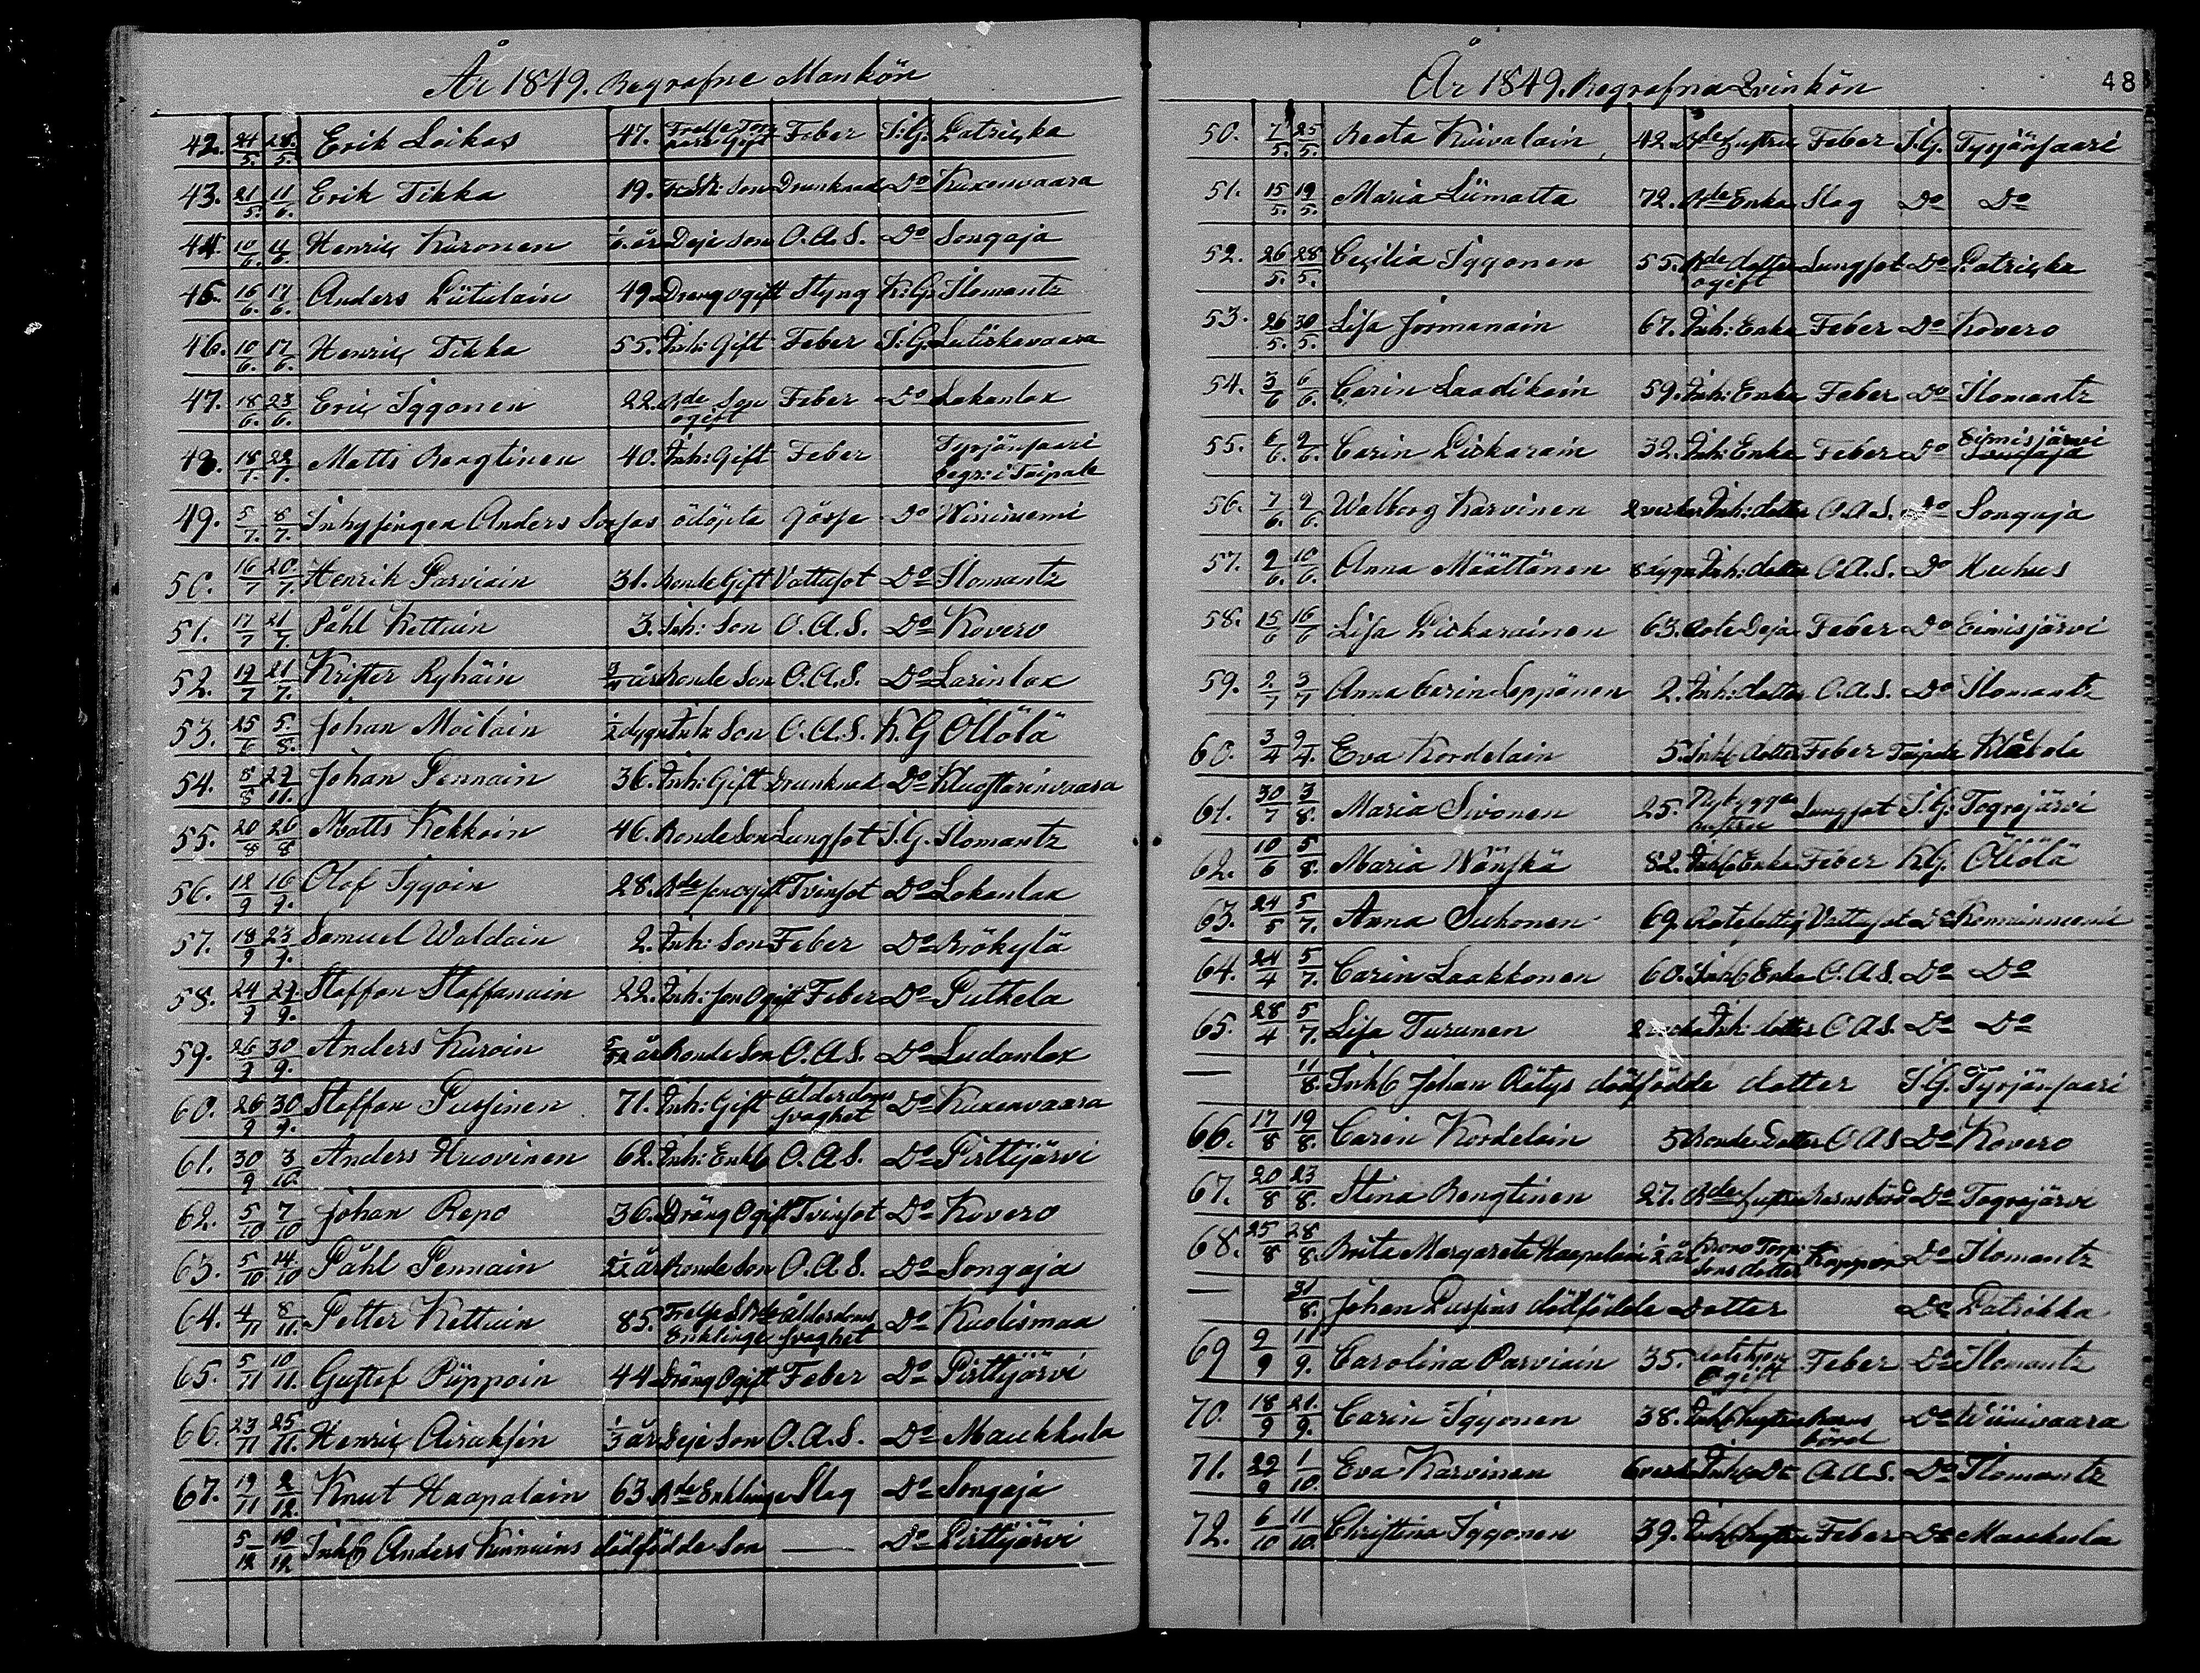 År 1849. Begrafne Mankön
42. 24/5. 28/5. Erik Loikas 47. Frelse Torpare Gift Feber I.G. Patrizka
43. 21/5. 11/6. Erik Tikka 19. Son Drunknad Do Kuxenvaara
44. 10/6. 11/6. Henric Kuronen 1/6 år Deje Son O.A.S. Do Songaja
45. 16/6. 17/6. Anders 49. Dreng ogift Styng K:G. Ilomantz
46. 10/6. 17/6. Henric Tikka 55. Inh: Gift Feber I:G. Lutiskavaara
47. 18/6. 23/6. Eric Iggonen 22. Bde Son ogift Feber Do Lokanlax
48. 18/7. 22/7. Matts Bengtinen 40. Inh: Gift Feber Tyrjänsaari begr: i Taipale
49. 5/7. 8/7. Inhysingen Anders odöpta gosse Do Wininiemi
50. 16/7 20/7. Henrik Parviain 31. Bonde Gift Vattusot Do Ilomantz
51. 17/7 21/7. Påhl Kettuin 3. Inh: Son O.A.S. Do Kovero
52. 19/7 21/7. Krister Ryhäin år Bonde Son O.A.S. Do Larinlax
53. 25/6 5/8. Johan Moilain 1/2 dygn Inh: Son O.A.S. K.G Öllölä
54. 8/8 29/11. Johan Pennain 36. Inh: Gift Drunknad Do Kluostarinvaara
55. 20/8 26/8 Matts Kekkoin 46. Bonde Son Lungsot I.G. Ilomantz
56. 12/9 16/9. Olof Iggoin 28. Bde son ogift Tvinsot Do Lokanlax
57. 18/9 23/9. Samuel Waldain 2. Inh: Son Feber Do Briökylä
58. 24/9 29/9. Staffan Staffanain 22. Inh: son Ogift Feber Do Putkela
59. 26/9 30/9. Anders Kuroin 5/12 år Bonde Son O.A.S. Do Ludanlax
60. 26/9 30/9. Staffan Pussinen 71. Inh: Gift Ålderdoms svaghet Do Kuxenvaara
61. 30/9 3/10. Anders Huovinen 62. Inh: Enkl O.A.S. Do Pirttijärvi
62. 5/10 7/10 Johan Repo 36. Dräng Ogift Tvinsot Do Kovero
63. 5/10 14/10 Påhl Pennain år Bonde Son O.A.S. Do Songaja
64. 4/11 8/11. Petter Kettuin 85. Frelse Bde Enklinge Ålderdoms svaghet Do Kuolismaa
65. 5/11 10/11. Gustaf Püppoin 44 Dräng Ogift Feber Do Pirttijärvi
66. 23/11 25/11. Henric Airaksin 1/3 år Deje Son O.A.S. Do Maukkula
67. 19/11 2/12. Knut Haapalain 63. Bde Enklinge Slag Do Songaja
5/12 10/12 Inh Anders Kinnuins dödfödde Son — Do Pirttijärvi
År 1849. Begrafna Qvinkön
48
50. 7/5. 25/5. Beata Kuivalain 42. Bde hustru Feber I.G. Tyrjänsaari
51. 15/5. 19/5. Maria Liimatta 72. Bde Enka Slag Do Do
52. 26/5. 28/5. Cecilia Iggonen 55. Bde dotter ogift Lungsot Do Patrizka
53. 26/5. 30/5. Lisa Jormanain 67. Inh: Enka Feber Do Kovero
54. 3/6 6/6. Carin Laadikain 59. Inh: Enka Feber Do Ilomantz
55. 6/6. 9/6. Carin Piskarain 32. Inh: Enka Feber Do Eimisjärvi Songaja
56. 7/6. 9/6. Walborg Karvinen 2 veckor Inh: dotter O.A.S. Do Songaja
57. 9/6. 10/6. Anna Määttänen 8 dygn Inh: dotter O.A.S. Do Huhus
58. 15/6 16/6 Lisa Piskarainen 63. Rote Deja Feber Do Eimisjärvi
59. 2/7 3/7 Anna Carin Leppänen 2. Inh: dotter O.A.S. Do Ilomantz
60. 3/4 9/4. Eva Kordelain 5. Inh dotter Feber Taipale
61. 30/7 3/8. Maria Sivonen 25. Nybygges hustru Lungsot I.G. Togrejärvi
62. 10/6 5/8. Maria Wänskä 82. Inh Enka Feber K.G. Öllölä
63. 24/5 5/7. Anna Suhonen 69. Rotefattig Vattusot Do Konnunniemi
64. 24/4 5/7. Carin Laakkonen 60. Inh Enka O.A.S. Do Do
65. 28/4 5/7. Lisa Turunen 2 vecka Inh: dotter O.A.S. Do Do
— 11/8. Inh Johan Rötys dödfödde dotter I.G. Tyrjänsaari
66. 17/8 19/8. Carin Kordelain 5 Bonde Dotter O.A.S Do Kovero
67. 20/8 23/8. Stina Bengtinen 27. Bde hustru Barnsbörd Do Togrejärvi
68. 25/8 28/8. Brita Margareta Haapalain 1/2 år Krono Torp: sons dotter Koppor Do Ilomantz
— 31/8. Johan Pussins dödfödde Dotter Do Patrikka
69 9/9 11/9. Carolina Parviain 35. Ogift Feber Do Ilomantz
70. 18/9 21/9. Carin Iggonen 38. Inh hustru Barnsbörd Do Wiinivaara
71. 29/9 1/10. Eva Karvinen 6 veck Inh Dr O.A.S. Do Ilomantz
72. 6/10 11/10. Christina Iggonen 39. Inh hustru Feber Do Maukula